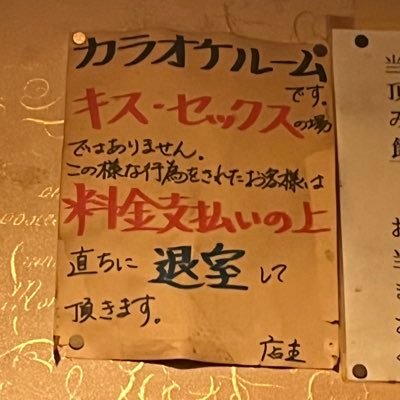 カラオケルーム
です。
キス・セックスの場
ではありません。
この様な行為をされたお客様は
料金支払いの上
直ちに退室して
頂きます。
店主
当
頂
み
館
お
当
ま